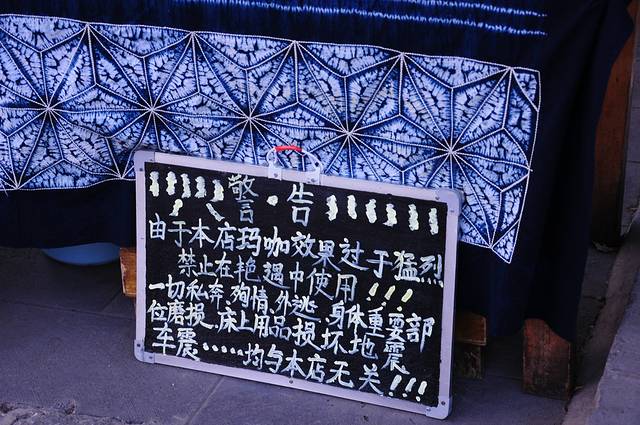 警·告
由于本店玛咖效果过于猛烈
禁止在艳遇中使用!!!
一切私奔.殉情.外逃.身体重要部
位磨损.床上用品损坏.地震
车震……均与本店无关!!!